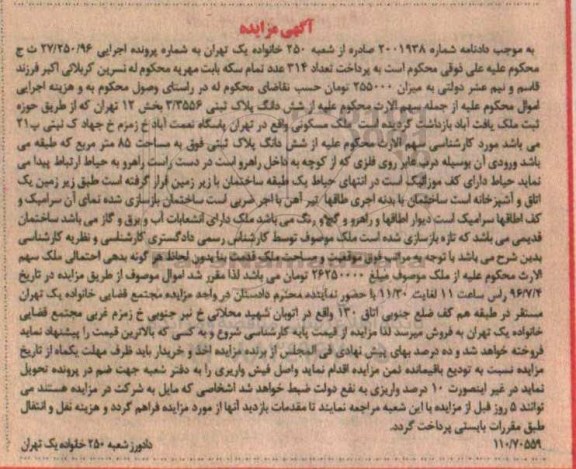 آگهی مزایده
به موجب دادنامه شماره ۲۰۰۱۹۳۸ صادره از شعبه ۲۵۰ خانواده یک تهران به شماره پرونده اجرایی ۲۷/۲۵۰/۹۶ ت ج
محکوم علیه علی ذوقی محکوم است به پرداخت تعداد ۳۱۴ عدد تمام سکه بابت مهریه محکوم له نسرین کربلائی اکبر فرزند
قاسم و نیم عشر دولتی به میزان ۲۵۵۰۰۰ تومان حسب تقاضای محکوم له در راستای وصول محکوم به و هزینه اجرایی
اموال محکوم علیه از جمله سهم الارث محکوم علیه از شش دانگ پلاک ثبتی ۳/۳۵۵۶ بخش ۱۲ تهران که از طریق حوزه
ثبت ملک یافت آباد بازداشت گردیده است. ملک مسکونی واقع در تهران پاسگاه نعمت آباد خ زمزم خ جهاد ک نیتی پ۲۱
می باشد مورد کارشناسی سهم الارث محکوم علیه از شش دانگ پلاک ثبتی فوق به مساحت ۸۵ متر مربع که طبقه می
باشد ورودی آن بوسیله درب عابر روی فلزی که از کوچه به داخل راهرو است در دست راست راهرو به حیاط ارتباط پیدا می
نماید حیاط دارای کف موزائیک است در انتهای حیاط یک طبقه ساختمان با زیر زمین قرار گرفته است طبق زیر زمین یک
اتاق و آشپزخانه است ساختمان با بدنه آجری طاقها تیر آهن با آجر ضربی است ساختمان بازسازی شده نمای آن سرامیک و
کف اطاقها سرامیک است دیوار اطاقها و راهرو و گچ و رنگ می باشد ملک دارای انشعابات آب و برق و گاز می باشد ساختمان
قدیمی می باشد که تازه بازسازی شده است ملک موصوف توسط کارشناس رسمی دادگستری کارشناسی و نظریه کارشناسی
بدین شرح می باشد با توجه به مراتب فوق موقعیت و مساحت ملک قدمت بنا بدون لحاظ هر گونه بدهی احتمالی ملک سهم
الارث محکوم علیه از ملک موصوف مبلغ ۲۶۲۵۰۰۰۰ تومان می باشد لذا مقرر شد اموال موصوف از طریق مزایده در تاریخ
۹۶/۷/۴ راس ساعت ۱۱ لغایت ۱۱/۳۰ با حضور نماینده محترم دادستان در واحد مزایده مجتمع قضایی خانواده یک تهران
مستقر در طبقه هم کف ضلع جنوبی اتاق ۱۳۰ واقع در اتوبان شهید محلاتی خ نبر جنوبی خ زمزم غربی مجتمع قضایی
خانواده یک تهران به فروش میرسد لذا مزایده از قیمت پایه کارشناسی شروع و به کسی که بالاترین قیمت را پیشنهاد نماید
فروخته خواهد شد و ده درصد بهای پیش نهادی فی المجلس از برنده مزایده اخذ و خریدار باید ظرف مهلت یکماه از تاریخ
مزایده نسبت به تودیع باقیمانده ثمن مزایده اقدام نماید واصل فیش واریزی را به دفتر شعبه جهت ضم در پرونده تحویل
نماید در غیر اینصورت ۱۰ درصد واریزی به نفع دولت ضبط خواهد شد اشخاصی که مایل به شرکت در مزایده هستند می
توانند ۵ روز قبل از مزایده با این شعبه مراجعه نمایند تا مقدمات بازدید آنها از مورد مزایده فراهم گردد و هزینه نقل و انتقال
طبق مقررات بایستی پرداخت گردد.
۱۱۰/۷۰۵۵۹ دادورز شعبه ۲۵۰ خانواده یک تهران